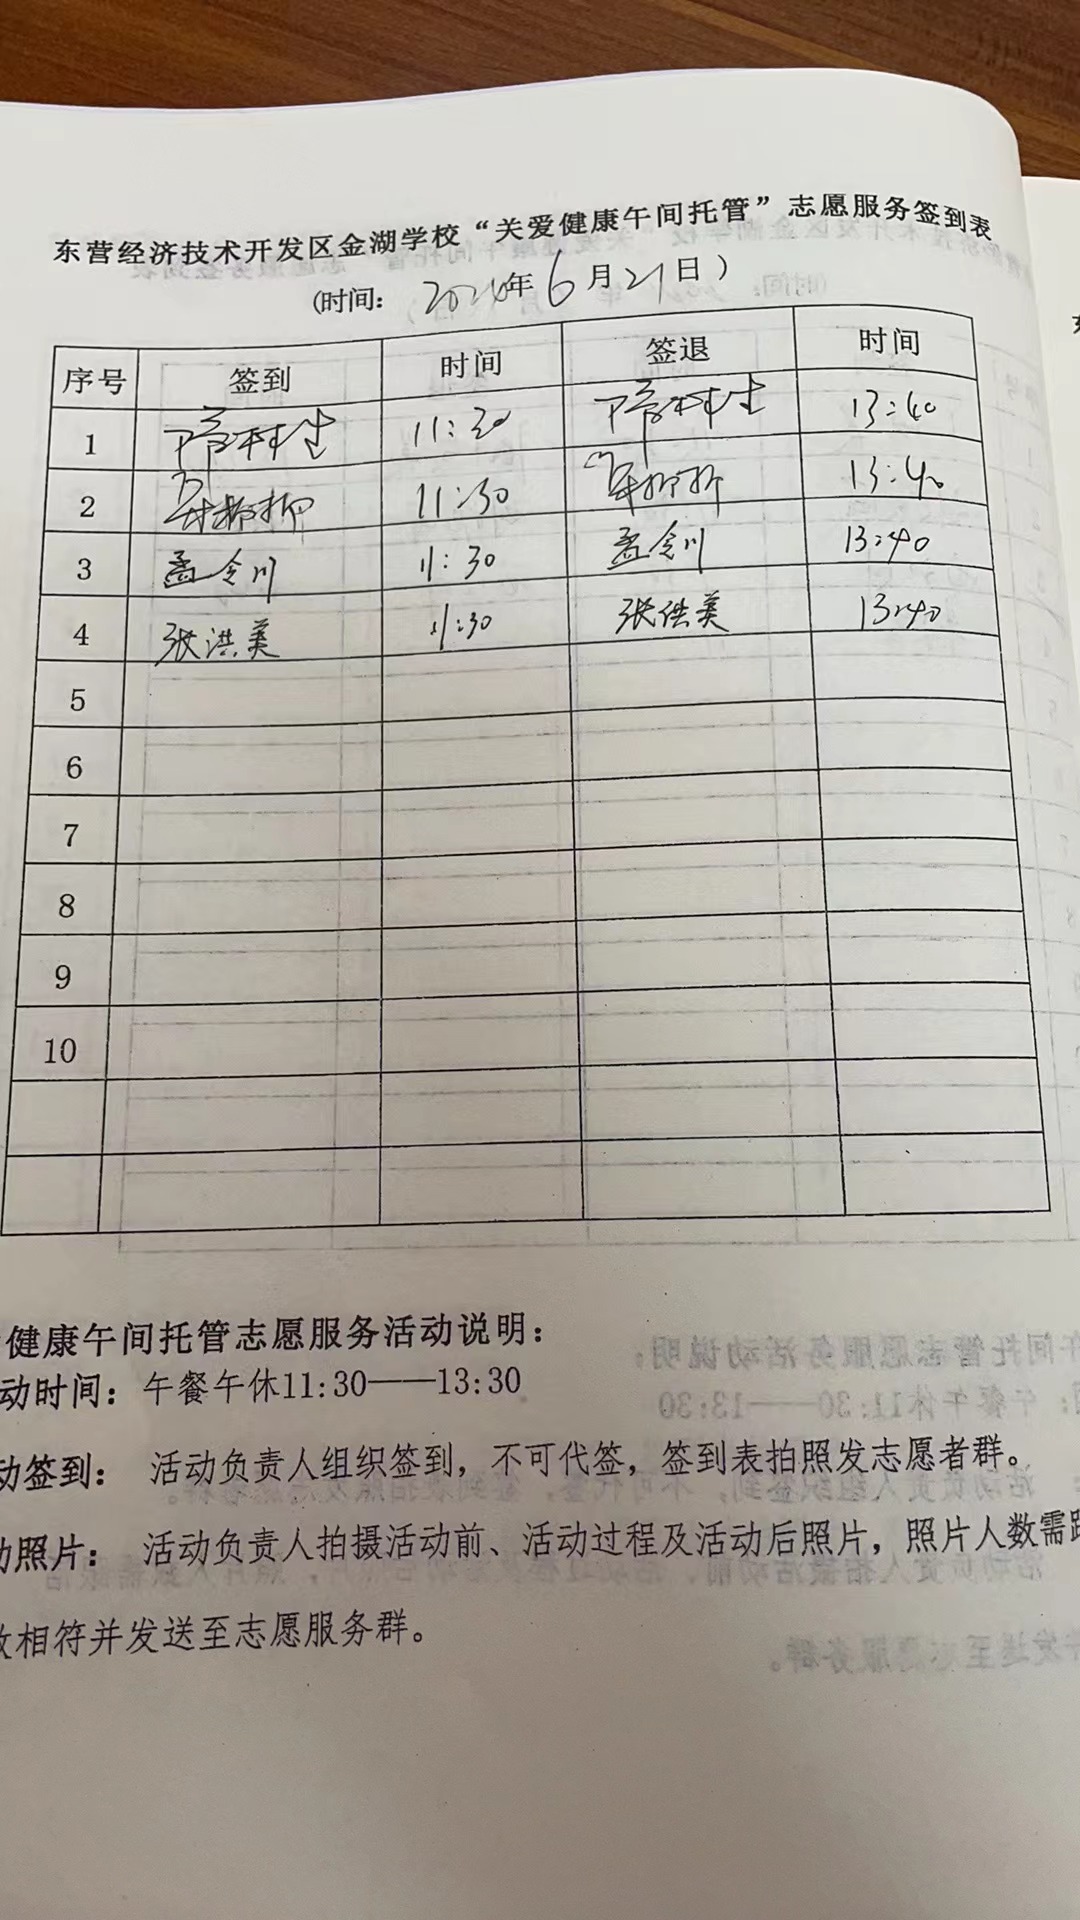 东营经济技术开发区金湖学校“关爱健康午间托管”志愿服务签到表
(时间: 2024年6月21日)
序号 签到 时间 签退 时间
1 11:30 13:40
2 11:30 13:40
3 孟令川 11:30 孟令川 13:40
4 张洪美 11:30 张洪美 13:40
5
6
7
8
9
10
健康午间托管志愿服务活动说明:
动时间: 午餐午休11:30——13:30
动签到: 活动负责人组织签到，不可代签，签到表拍照发志愿者群。
动照片: 活动负责人拍摄活动前、活动过程及活动后照片，照片人数需跟
数相符并发送至志愿服务群。